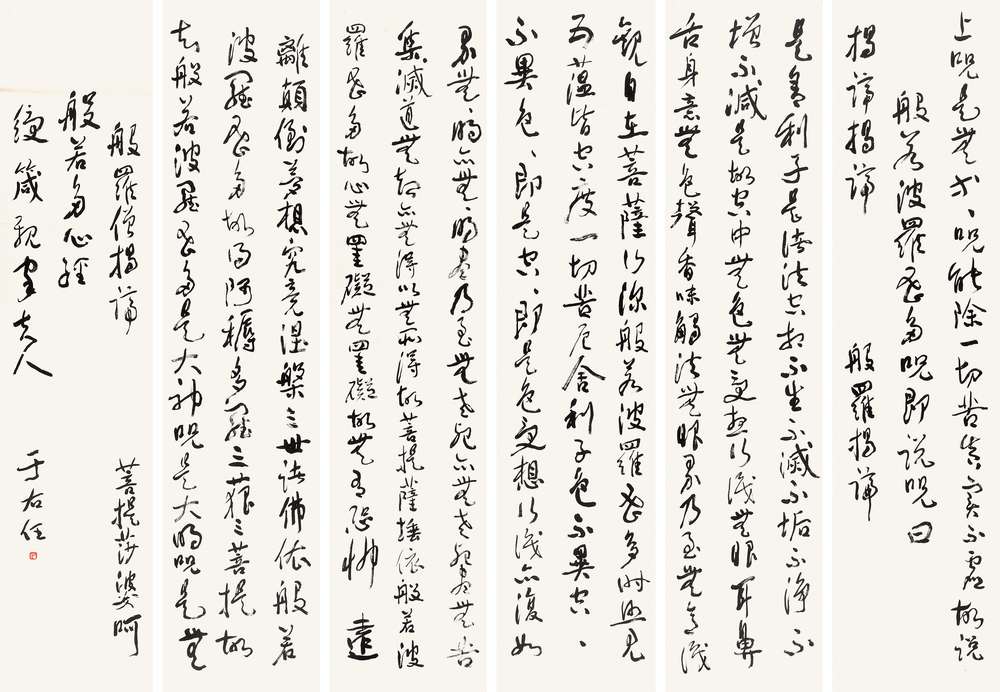 上呪是無等、呪能除一切苦真實不虛故說
般若波羅蜜多呪即說呪曰
揭諦揭諦 般羅揭諦
是舍利子是諸法空相不生不滅不垢不淨不
增不減是故空中無色無受想行識無眼耳鼻
舌身意無色聲香味觸法無眼界乃至無意識
觀自在菩薩行深般若波羅蜜多時照見
五蘊皆空度一切苦厄舍利子色不異空、
不異色、即是空、即是色受想行識亦復如
界無、明亦無、明盡乃至無老死亦無老死盡無苦
集滅道無智亦無得以無所得故菩提薩埵依般若波
羅蜜多故心無罣礙無罣礙故無有恐怖遠
離顛倒夢想究竟涅槃三世諸佛依般若
波羅蜜多故得阿耨多羅三藐三菩提故
知般若波羅蜜多是大神呪是大明呪是無
般羅僧揭諦 菩提莎婆呵
般若多心經
箴親家夫人 于右任